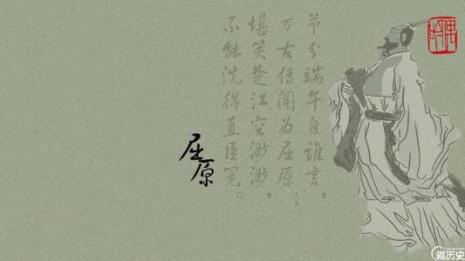 节分端午自谁言，
万古传闻为屈原。
堪笑楚江空渺渺，
不能洗得直臣冤。
屈原
趣历史